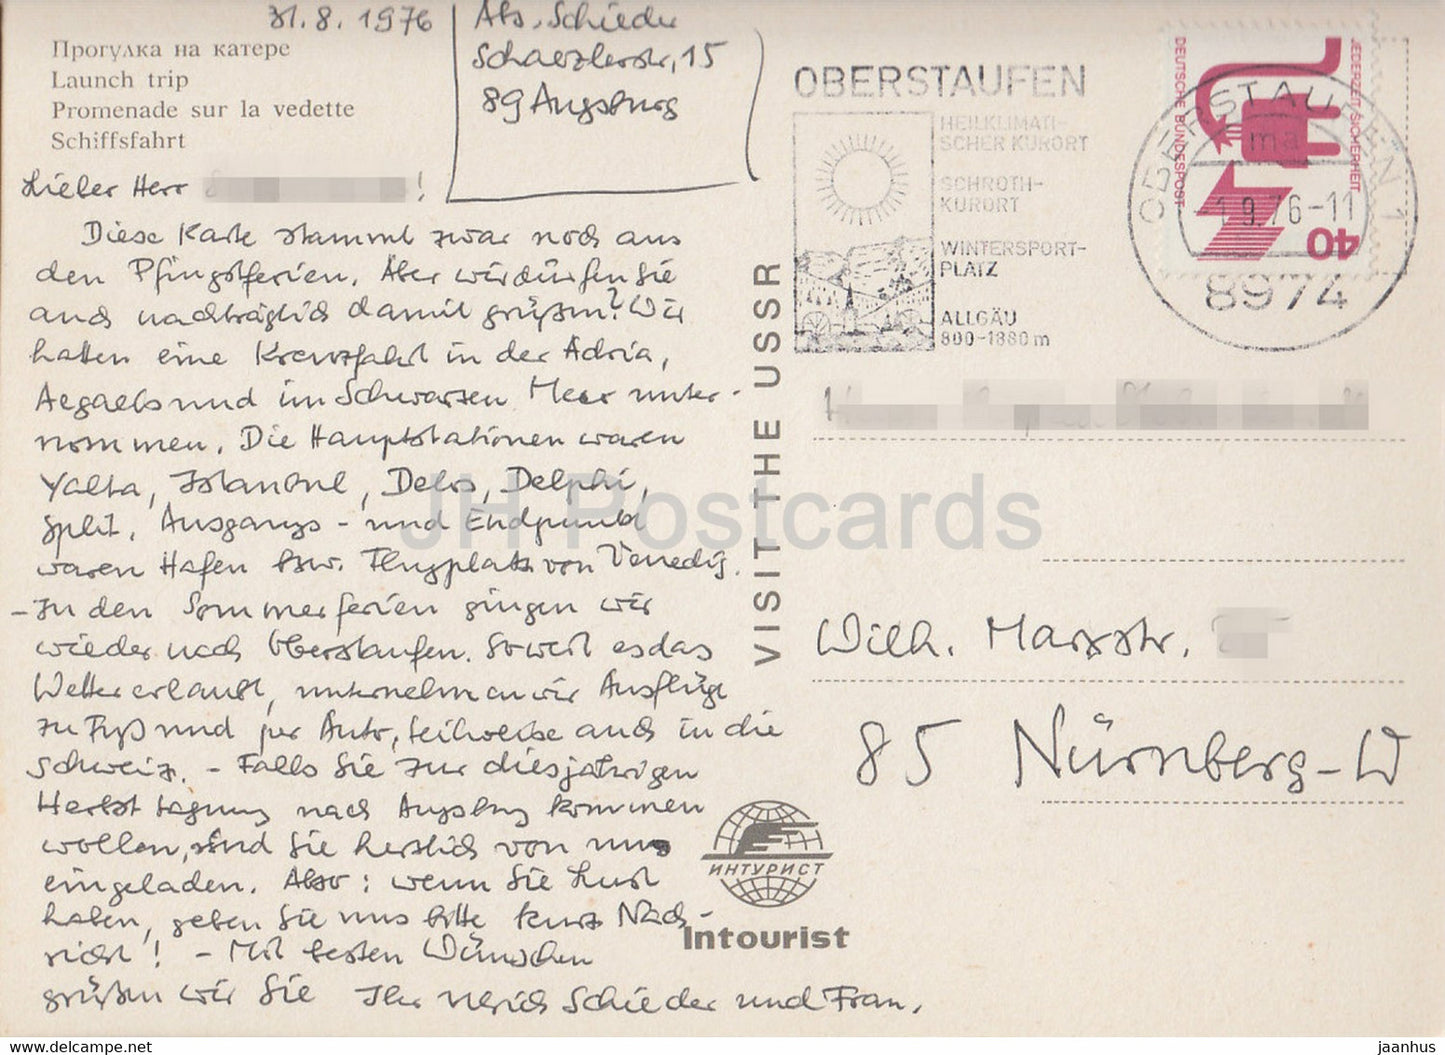 31.8.1976
Прогулка на катере
Launch trip
Promenade sur la vedette
Schiffsfahrt
Abs. Schieder
Schaezlerstr. 15
89 Augsburg
Lieber Herr !
Diese Karte stammt zwar noch aus
den Pfingstferien. Aber wir dürfen Sie
auch nachträglich damit grüßen? Wir
hatten eine Kreuzfahrt in der Adria,
Aegaeis und im Schwarzen Meer unter-
nommen. Die Hauptstationen waren
Yalta, Istanbul, Delos, Delphi,
Split. Ausgangs- und Endpunkt
waren Hafen bzw. Flugplatz von Venedig.
- In den Sommerferien gingen wir
wieder nach Oberstaufen. Soweit es das
Wetter erlaubt, unternehmen wir Ausflüge
zu Fuß und per Auto, teilweise auch in die
Schweiz. - Falls Sie zur diesjährigen
Herbsttagung nach Augsburg kommen
wollen, sind Sie herzlich von uns
eingeladen. Also: wenn Sie Lust
haben, geben Sie uns bitte kurz Nach-
richt! - Mit besten Wünschen
grüßen wir Sie Ihr Ulrich Schieder und Frau.
VISIT THE USSR
ИНТУРИСТ
Intourist
OBERSTAUFEN
HEILKLIMATI-
SCHER KURORT
SCHROTH-
KURORT
WINTERSPORT-
PLATZ
ALLGÄU
800-1880 m
OBERSTAUFEN 1
ma
-1.9.76-11
8974
DEUTSCHE BUNDESPOST
JEDERZEIT SICHERHEIT
40
Wilh. Marxstr.
85 Nürnberg-W
JH Postcards
www.delcampe.net
jaanhus